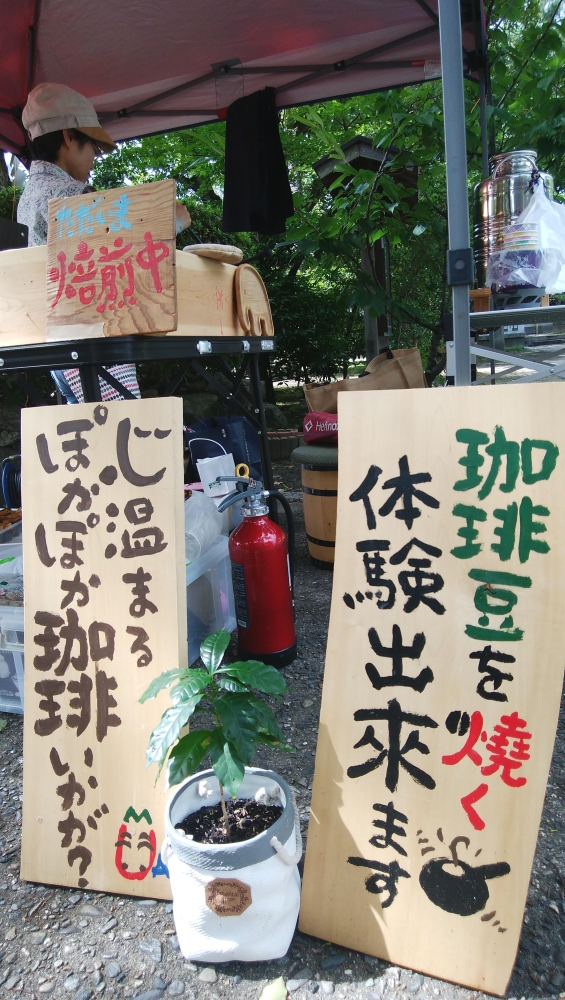 ただいま
焙煎中
心温まる
ぽかぽか珈琲いかが?
珈琲豆を焼く
体験出來ます
Helinox